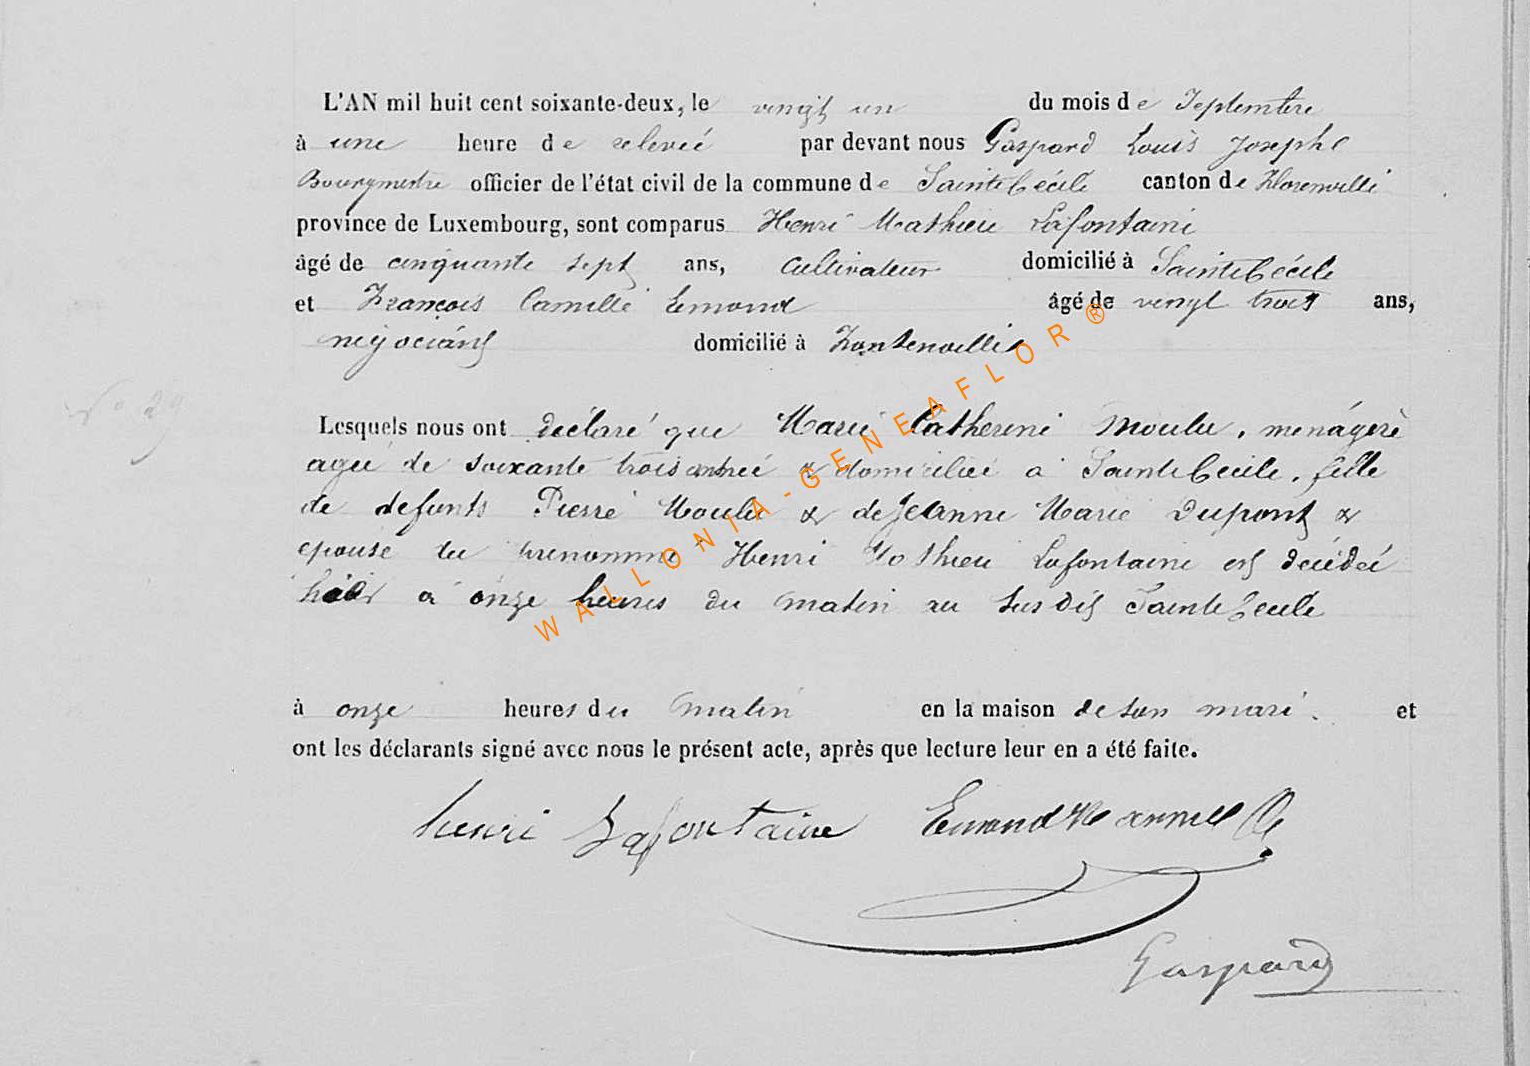 L'AN mil huit cent soixante-deux, le vingt un du mois de Septembre
à une heure de relevée par devant nous Gaspard Louis Josephe
Bourgmestre officier de l'état civil de la commune de Sainte Cécile canton de Florenville
province de Luxembourg, sont comparus Henri Mathieu Lafontaine
âgé de cinquante sept ans, cultivateur domicilié à Sainte Cécile
et François Camille Emond âgé de vingt trois ans,
négociant domicilié à Fontenoille
N° 29
Lesquels nous ont déclaré que Marie Catherine Moulu, ménagère
agée de soixante trois année & domiciliée à Sainte Cécile, fille
de defunts Pierre Moulu & de Jeanne Marie Dupont &
epouse du prenommé Henri Mathieu Lafontaine est décédée
hier à onze heures du matin au susdit Sainte Cecile
à onze heures du matin en la maison de son mari. et
ont les déclarants signé avec nous le présent acte, après que lecture leur en a été faite.
henri Lafontaine Emond
Gaspard
WALLONIA-GENEAFLOR®